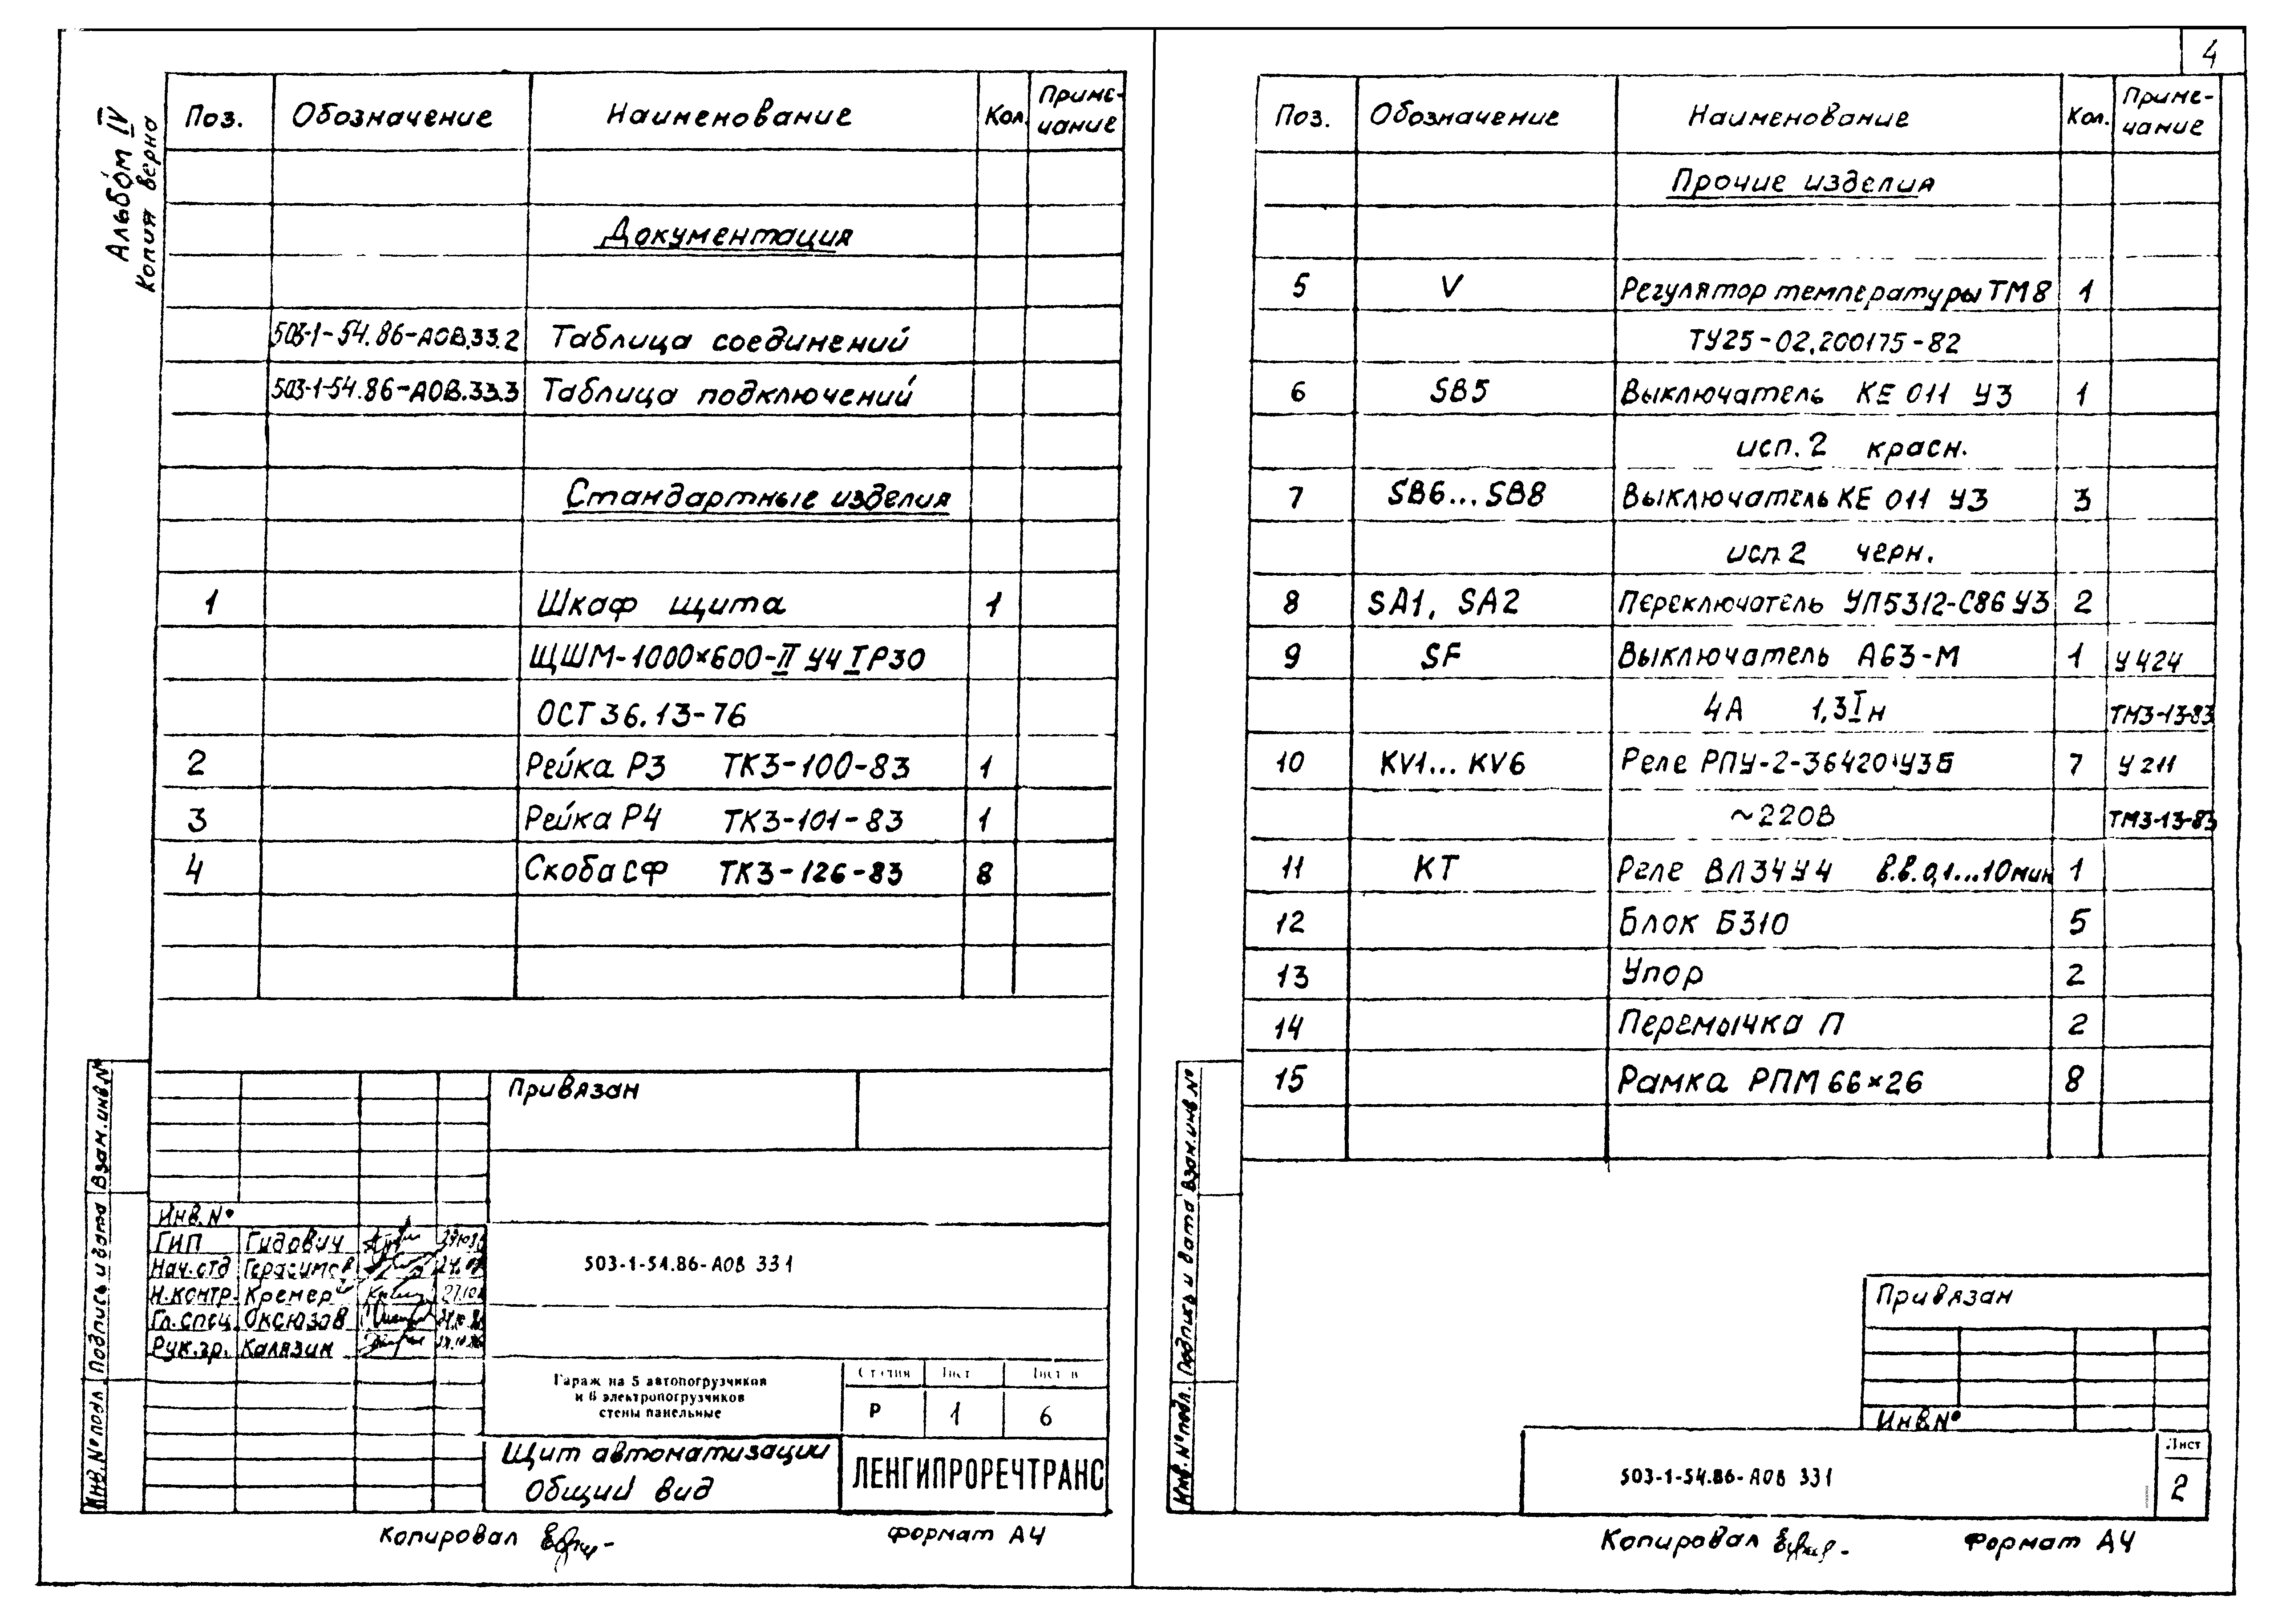 4
Альбом IV
Копия верна
Поз. Обозначение Наименование Кол. Приме-
чание
Документация
503-1-54.86-АОВ.33.2 Таблица соединений
503-1-54.86-АОВ.33.3 Таблица подключений
Стандартные изделия
1 Шкаф щита 1
ЩШМ-1000×600-II У4 I Р30
ОСТ 36.13-76
2 Рейка Р3 ТК3-100-83 1
3 Рейка Р4 ТК3-101-83 1
4 Скоба СФ ТК3-126-83 8
Привязан
Инв. №
ГИП Гидович
Нач. отд Герасимов
Н. контр. Кремер
Гл. спец. Оксюзов
Рук. гр. Калязин
503-1-54.86-АОВ 331
Гараж на 5 автопогрузчиков
и 6 электропогрузчиков
стены панельные
Стадия Лист Листов
Р 1 6
Щит автоматизации
Общий вид
ЛЕНГИПРОРЕЧТРАНС
Инв. № подл. Подпись и дата Взам. инв. №
Копировал Формат А4
Поз. Обозначение Наименование Кол. Приме-
чание
Прочие изделия
5 V Регулятор температуры ТМ8 1
ТУ25-02.200175-82
6 SB5 Выключатель КЕ 011 У3 1
исп. 2 красн.
7 SB6...SB8 Выключатель КЕ 011 У3 3
исп 2 черн.
8 SA1, SA2 Переключатель УП5312-С86 У3 2
9 SF Выключатель А63-М 1 У424
4А 1,3Iн ТМ3-13-83
10 KV1... KV6 Реле РПУ-2-36420 У3Б 7 У211
~220В ТМ3-13-83
11 КТ Реле ВЛ34У4 в.в. 0,1...10мин 1
12 Блок Б310 5
13 Упор 2
14 Перемычка П 2
15 Рамка РПМ 66×26 8
Привязан
Инв №
503-1-54.86-АОВ 331
Лист
2
Инв. № подл. Подпись и дата Взам. инв №
Копировал Формат А4